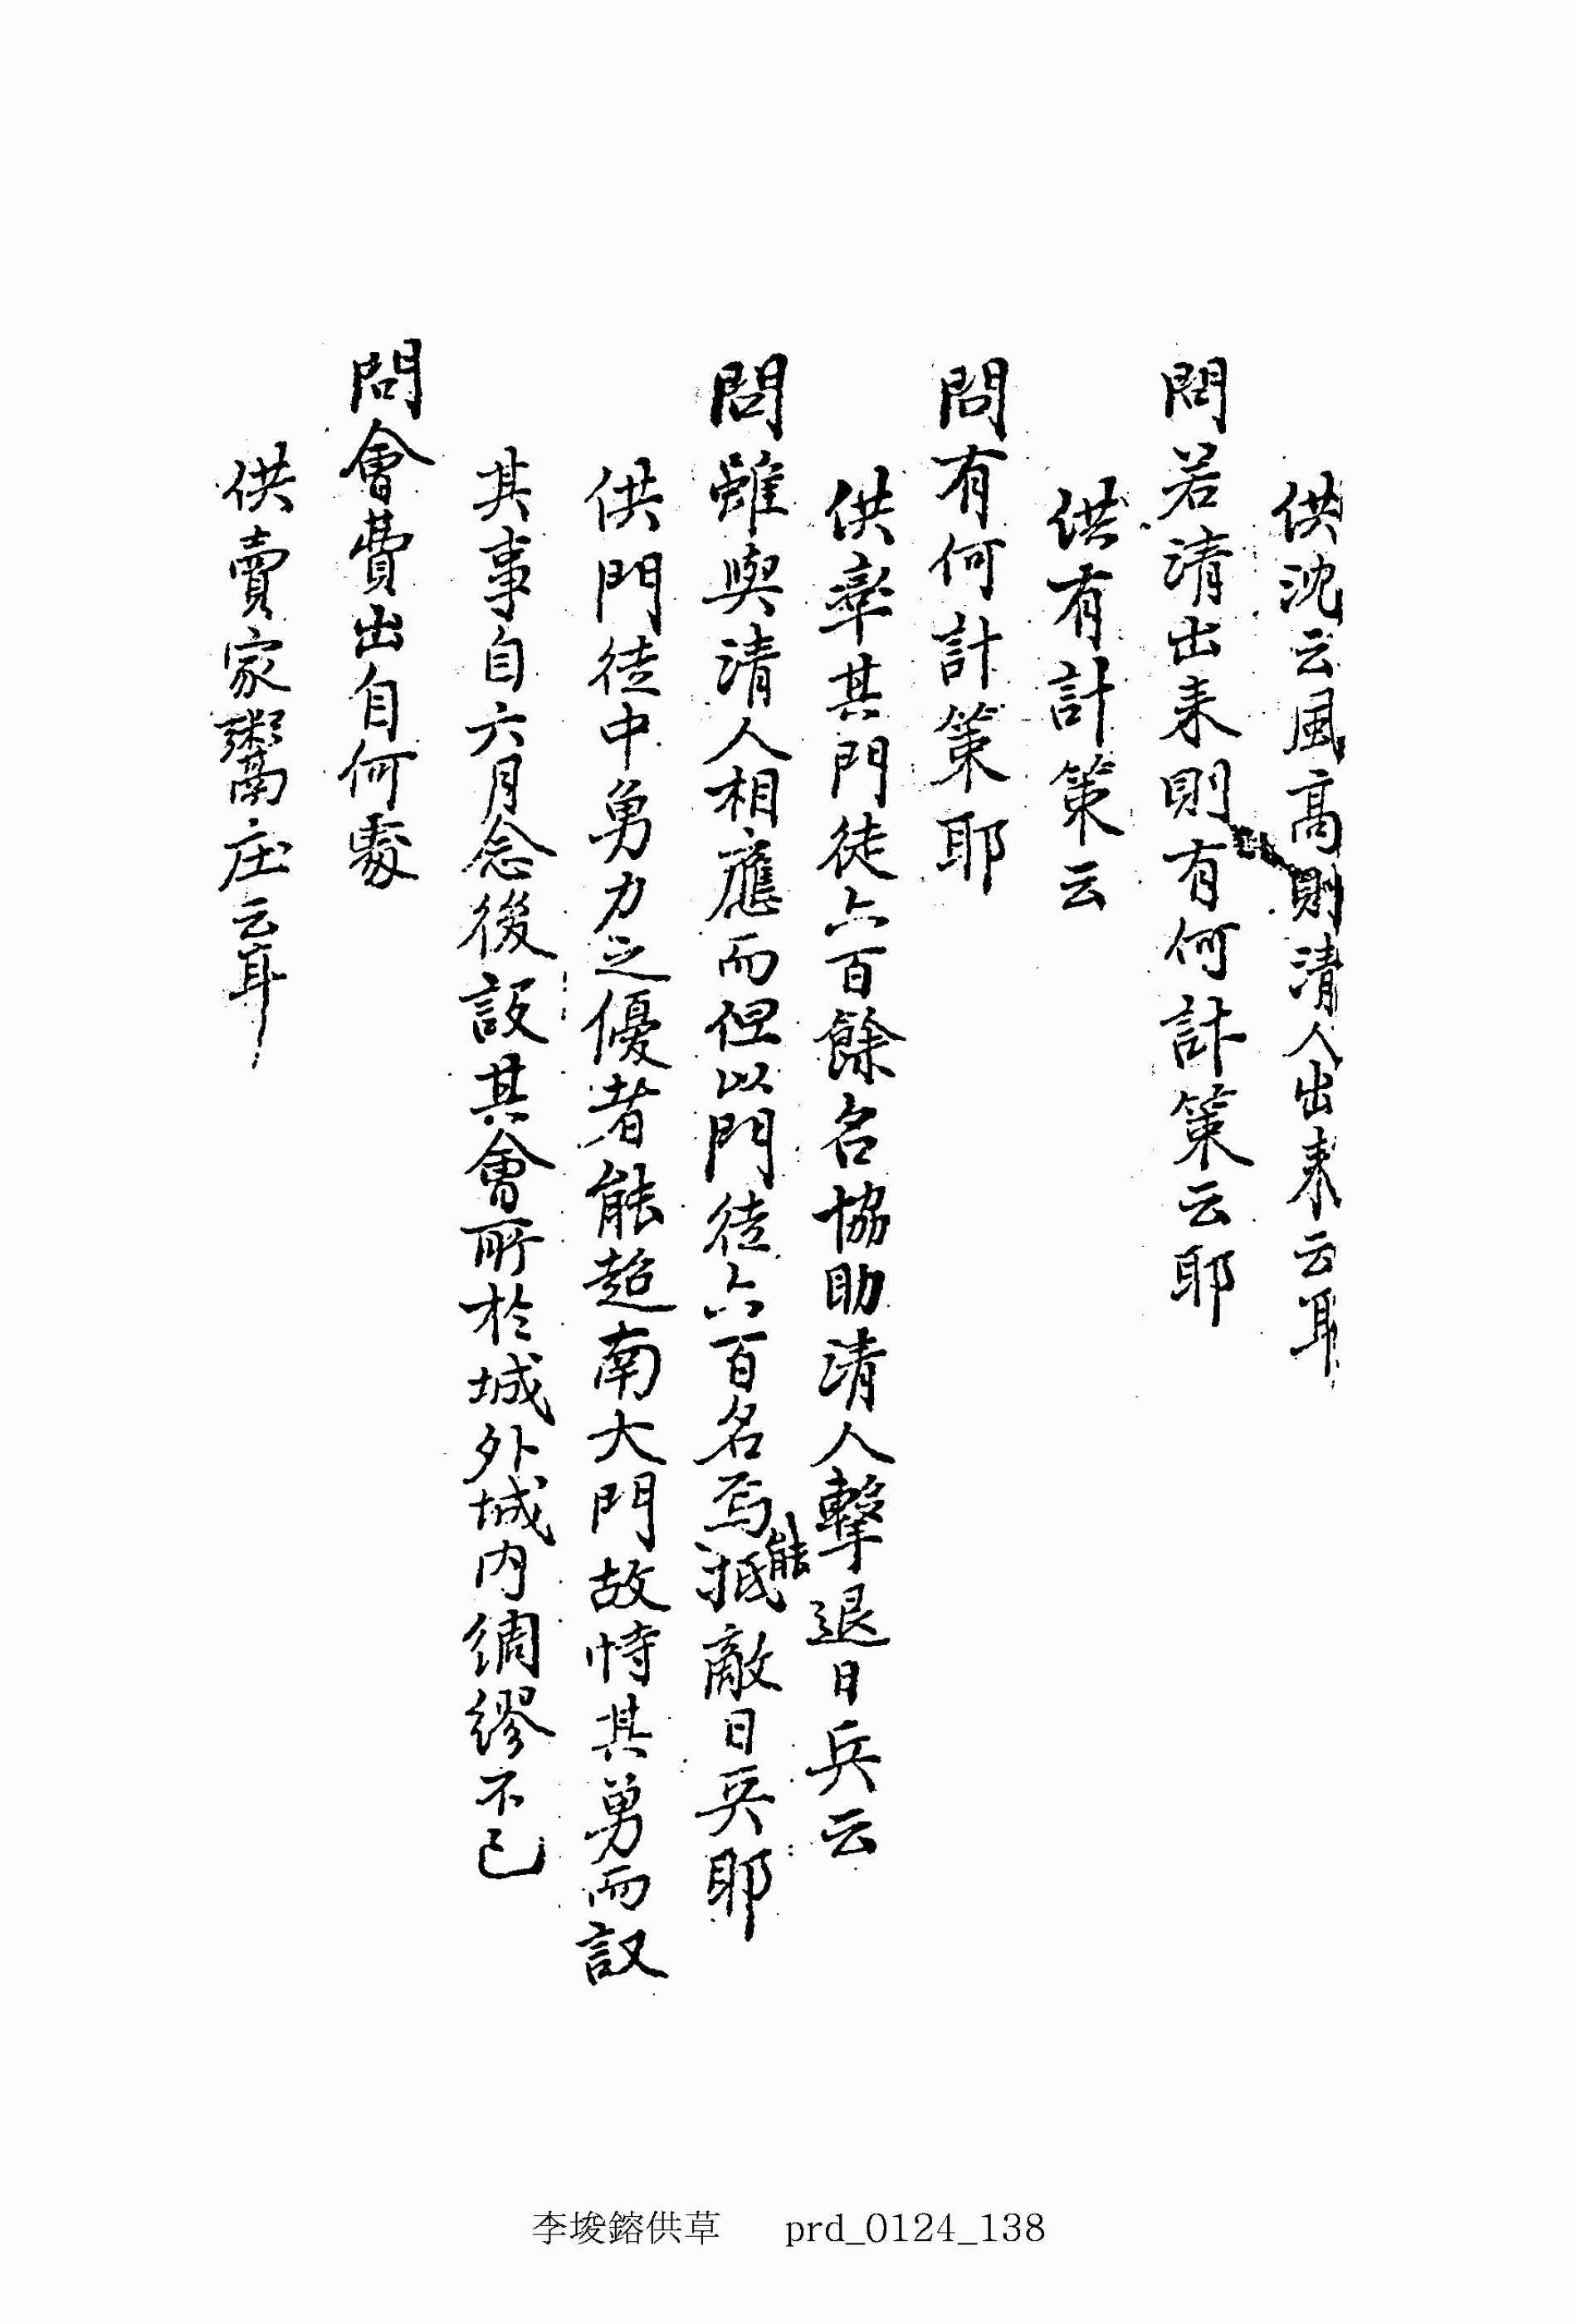 供沈云風高則清人出来云耳
問若清出来則有何計策云耶
供有計策云
問有何計策耶
供率其門徒六百餘名協助清人擊退日兵云
問雖與清人相應而但以門徒六百名焉能抵敵日兵耶
供門徒中勇力之優者能超南大門故恃其勇而設
其事自六月念後設其會所於城外城内綢繆不已
問會費出自何處
供賣家鬻庄云耳
李埈鎔供草 prd_0124_138